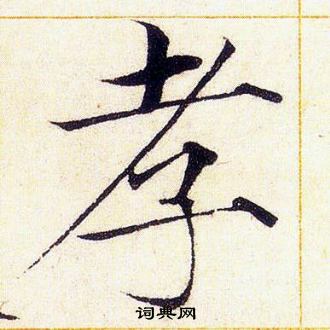 孝
词典网